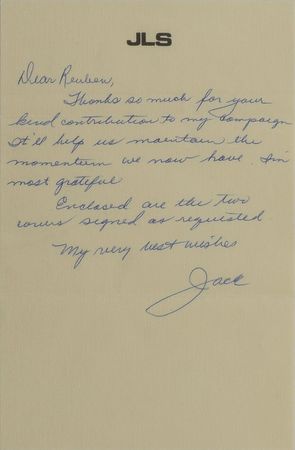 JLS
Dear Reuben,
Thanks so much for your
kind contribution to my campaign
It'll help us maintain the
momentum we now have. I'm
most grateful
Enclosed are the two
covers signed as requested.
My very best wishes
Jack